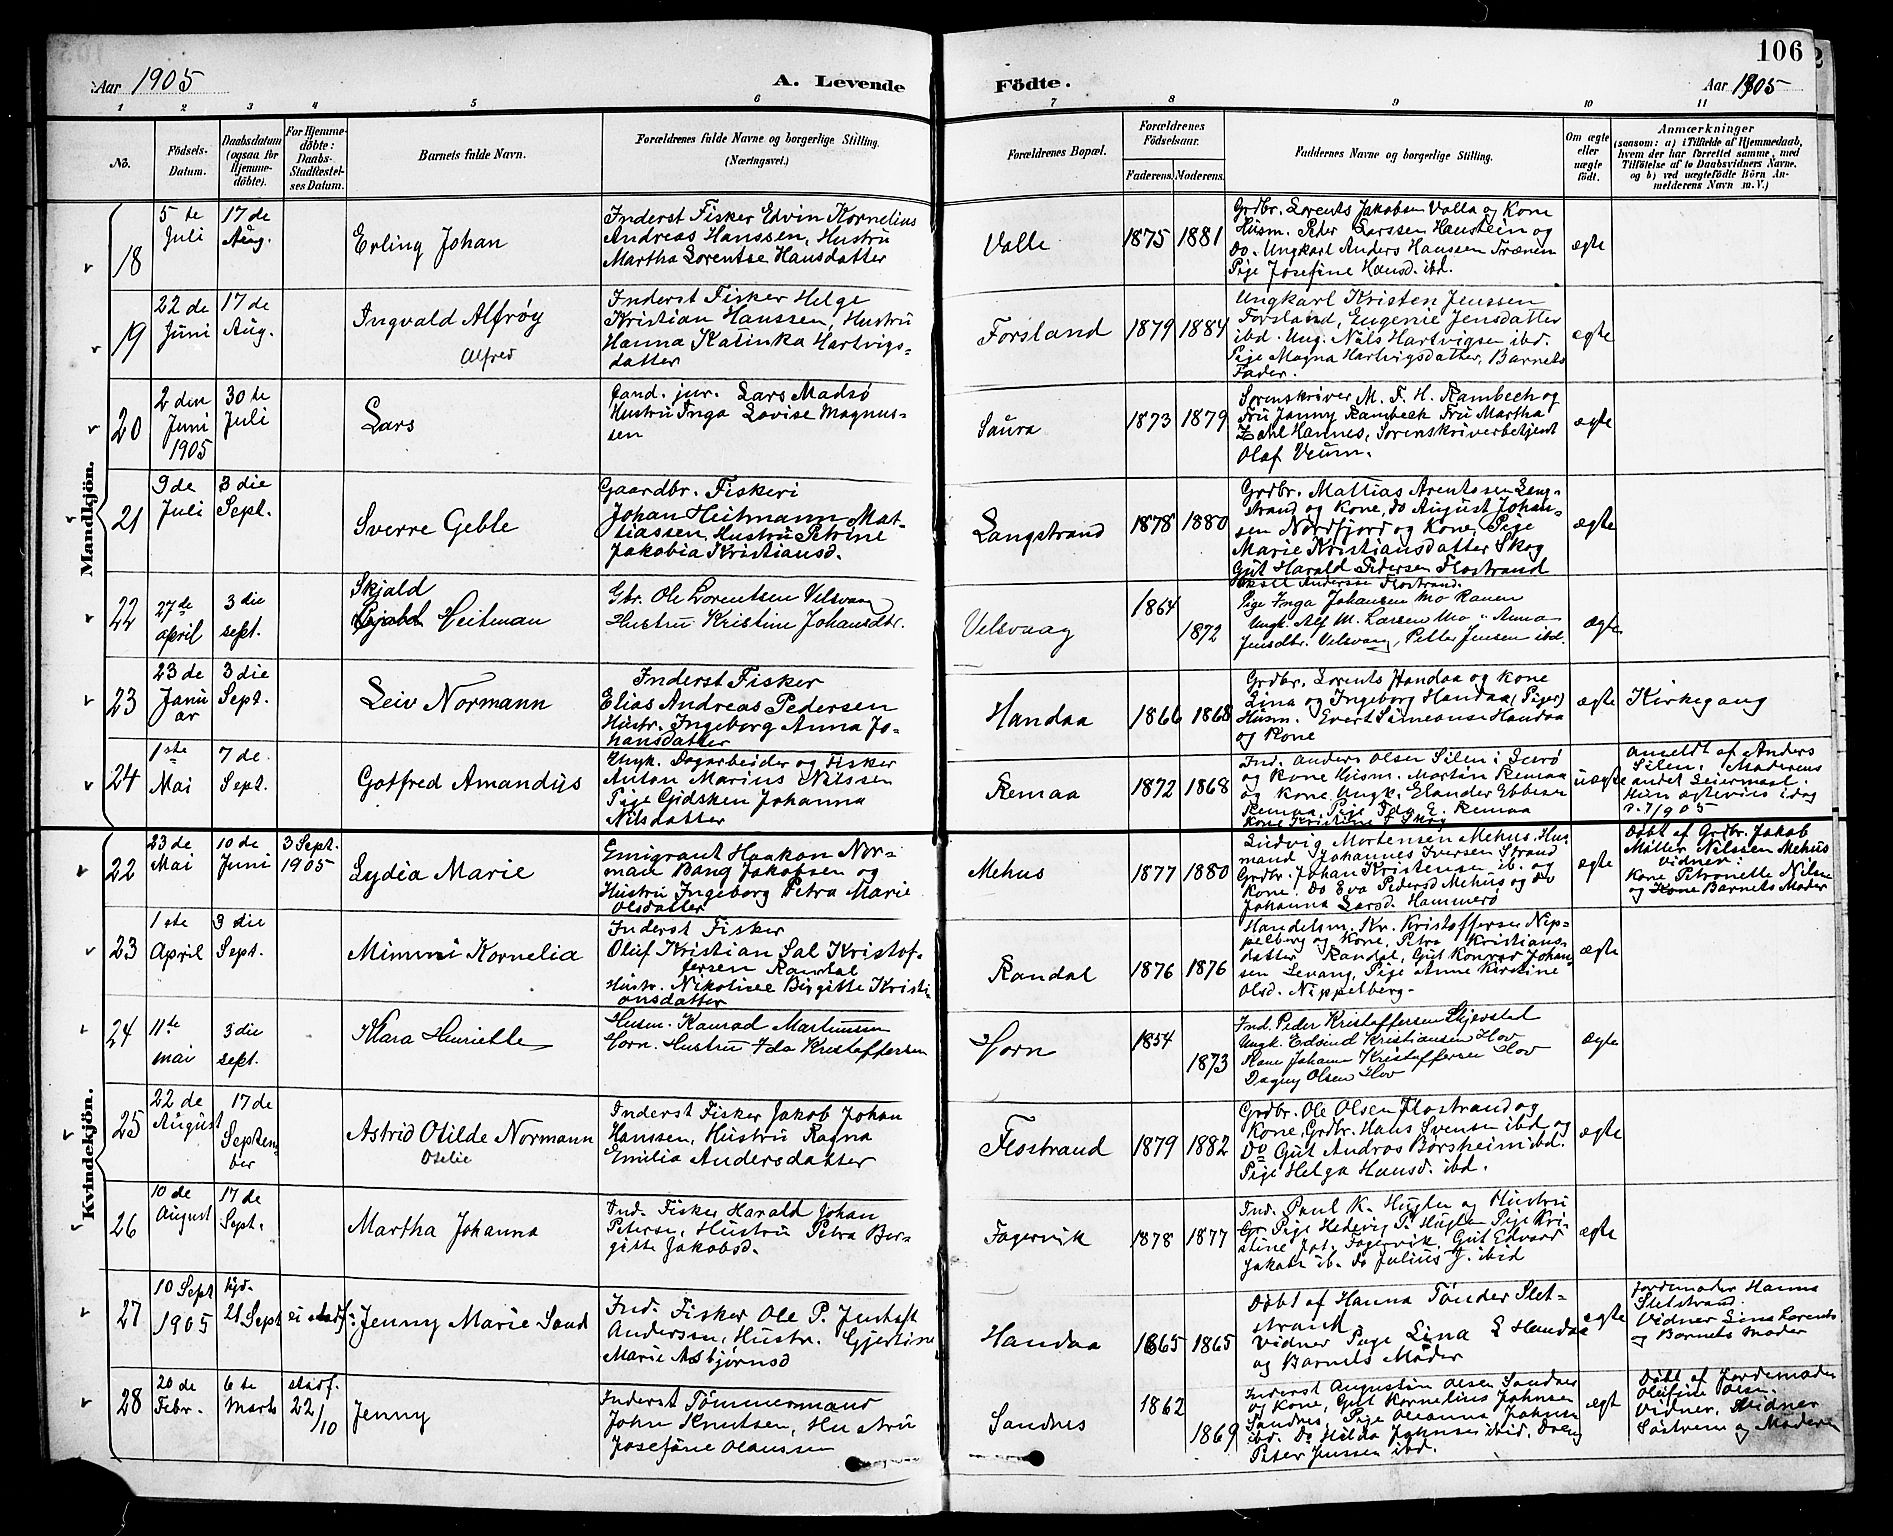 106
Aar 1905
A. Levende
Födte.
Aar 1905
1 2 3 4 5 6 7 8 9 10 11
No.
Födsels-
Datum.
Daabsdatum
(ogsaa for
Hjemme-
döbte).
For Hjemme-
döbte:
Daabs-
Stadfæstel-
ses Datum.
Barnets fulde Navn.
Forældrenes fulde Navne og borgerlige Stilling.
(Næringsvei.)
Forældrenes Bopæl.
Forældrenes
Födselsaar.
Faderens. Moderens.
Faddernes Navne og borgerlige Stilling.
Om ægte
eller
uægte
födt.
Anmærkninger
(saasom: a) i Tilfælde af Hjemmedaab,
hvem der har forrettet samme, med
Tilföielse af to Daabsvidners Navne.
og b) ved uægtefödte Börn An-
melderens Navn m. V.)
Mandkjön.
18
5 te
Juli
17 de
Aug.
Erling Johan
Inderst Fisker Edvin Kornelius
Andreas Hanssen, Hustru
Martha Lorentse Hansdatter
Valle
1875 1881
Grdbr. Lorents Jakobsen Valla og Kone
Husm. Peder Larssen Haustein og
Do. Ungkarl Anders Hanssen Trænen
Pige Josefine Hansd. ibd.
ægte
19
22 de
Juni
17 de
Aug.
Ingvald Alfrøy
Alfred
Inderst Fisker Helge
Kristian Hanssen, Hustru
Hanna Katinka Hartvigs-
datter
Forsland
1879 1884
Ungkarl Kristen Jenssen
Forsland, Eugenie Jensdatter
ibd. Ung. Nils Hartvigsen ibd.
Pige Magna Hartvigsdatter, Barnets
Fader.
ægte
20
2 den
Juni
1905
30 te
Juli
Lars
Cand. jur. Lars Madsø
Hustru Inga Lovise Magnus-
sen
Saura
1873 1879
Sorenskriver M. F. H. Rambech og
Fru Janny Rambech Fru Martha
Zahl Hannes, Sorenskriverbetjent
Olaf Veum.
ægte
21
9 de
Juli
3 die
Sept.
Sverre Geble
Gaardbr. Fiskeri
Johan Heitmann Mat-
tiassen, Hustru Petrine
Jakobia Kristiansd.
Langstrand
1878 1880
Grdbr. Mattias Arentssen Lang-
strand og Kone, do August Johan-
sen Nordfjord og Kone, Pige
Marie Kristiansdatter Skog
Gut Harald Pedersen Flostrand
Andersse Flostrand.
ægte
22
27de
april
3 die
sept.
Skjald
Heitman
Gbr. Ole Lorentsen Velsvaag
Hustru Kristine Johansdtr.
Velsvaag
1864
1872
Pige Inga Johansen Mo Ranen
Ungk. Alf M. Larsen Mo " Anna
Jensdtr. Velsvaag, Petter Jensen ibd.
ægte
23
23 de
Janu
ar
3 die
Sept.
Leiv Normann
Inderst Fisker
Elias Andreas Pedersen
Hustr. Ingeborg Anna Jo-
hansdatter
Handaa
1866 1868
Grdbr. Lorents Handaa og Kone
Lina og Ingeborg Handaa (Piger)
Husm. Evert Simeonse Handaa
og Kone
ægte
Kirkegang
24
1ste
Mai
7 de.
Sept.
Gotfred Amandus
Ungk. Dagarbeider og Fisker
Anton Marius Nilssen
Pige Gidsken Johanna
Nilsdatter
Remaa
1872 1868
Ind. Anders Olsen Silen i Lurø
og Kone Husm. Martin Remaa
og Kone Ungk. Elander Ebbesen
Remaa, Pige Ida E. Remaa
Kone Kristine
uægte
Anmeldt af Anders
Silen. Moderens
andet Leiermaal
Hun ægtevies idag
d. 7/905
Kvindekjön.
22
23 de
Mai
10 de
Juni
3 Sept.
1905
Lydia Marie
Emigrant Haakon Nor-
man Bang Jakobsen og
Hustru Ingeborg Petra Marie
Olsdatter
Mehus
1877 1880
Ludvig Mortensen Mehus, Hus
mand Johannes Iversen Strand
Grdbr. Johan Kristensen ib. og
Kone, Do Eva Pedersd Mehus og Do
Johanna Larsd. Hammerø
ægte
Døbt af Grdbr. Jakob
Møller Nilssen Mehus
Vidner:
Kone Petronelle Nilsen
og Kone Barnets Moder
23
1 ste
April
3 die
Sept.
Mimmi Kornelia
Inderst Fisker
Oluf Kristian Sal Kristof-
fersen Randal
Hustr. Nikoline Birgitte Kristi-
ansdatter
Randal
1876 1876
Handelsm. Kr. Kristoffersen Nip-
pelberg og Kone, Petra Kristians-
datter Randal, Gut Konrad Johan-
sen Levang, Pige Anne Kirstine
Olsd. Nippelberg.
ægte
24
11te
mai
3 die
sept.
Klara Henriette
Husm. Konrad Martinussen
Horn. Hustru Ida Kristoffersen
Horn
1854
1873
Ind. Peder Kristoffersen
Ungk. Edvind Kristiansen Hov
Kone Johann Kristoffersen Hov
Dagny Olsen Hov
ægte
25
22 de
August
17 de
Septem-
ber
Astrid Otilde Normann
Otelie
Inderst Fisker Jakob Johan
Hanssen, Hustru Ragna
Emilia Andersdatter
Flostrand
1879 1882
Grdbr. Ole Olsen Flostrand og
Kone, Grdbr. Hans Svensen ibd og
Do Gut Andreas Børsheim ibd.
Pige Helga Hansd. ibd.
ægte
26
10 de
August
17 de
Sept.
Martha Johanna
Ind. Fisker Harald Johan
Petersen, Hustru Petra Ber-
gitte Jakobsd.
Fagervik
1878 1877
Ind. Paul K. Huglen og Hustru
Gr. Pige Hedevig P. Huglen Pige Kri-
stine Jak. Fagervik, Gut Edvard
Jakobs ib. do Julius J. ibid
ægte
27
10 Sept
1905
hjd.
21 Sept
ei stadf:
Jenny Marie Sand
Ind. Fisker Ole P. Jentoft
Andersen, Hustr. Gjertine
Marie Asbjørnsd
Handaa
1865 1865
Døbt af Hanna Tønder Slet-
strand.
Vidner Pige Lina L Handaa
og Barnets Moder
ægte
Jordemoder Hanna
Sletstrand.
Vidner Lina Lorents
og Barnets Moder
28
20 de
Febr.
6 te
Marts
stadf.
22/10
Jenny
Inderst Tømmermand
John Knutsen, Hustru
Josefine Olaussen
Sandnes
1862
1869
Inderst Augustin Olsen Sandnes
og Kone, Gut Kornelius Johnsen
Sandnes, Pige Oleanna Johnsen
ibd. Do Hilda Johnsen ibid. Dreng
Peter Jenssen ibd.
ægte
Døbt af Jordemoder
Olufine Olsen.
Vidner, Vidner
Søstrene og Moderen